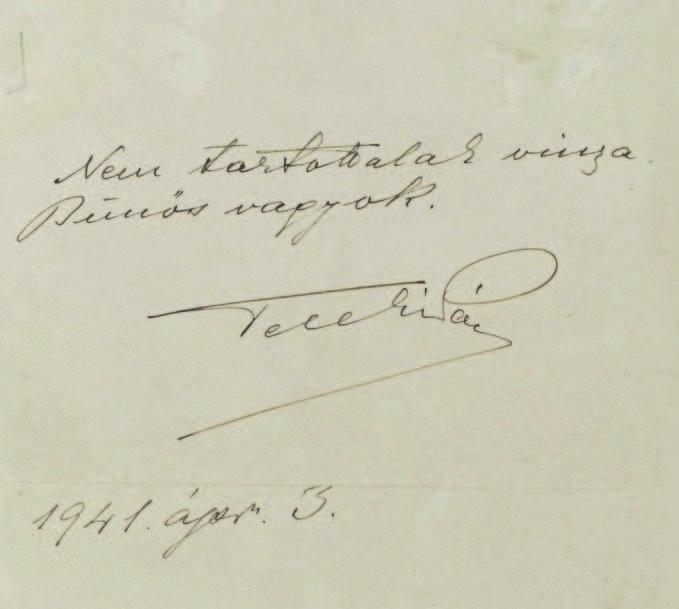 Nem tartottalak vissza.
Bűnös vagyok.
Teleki Pál
1941. ápr. 3.